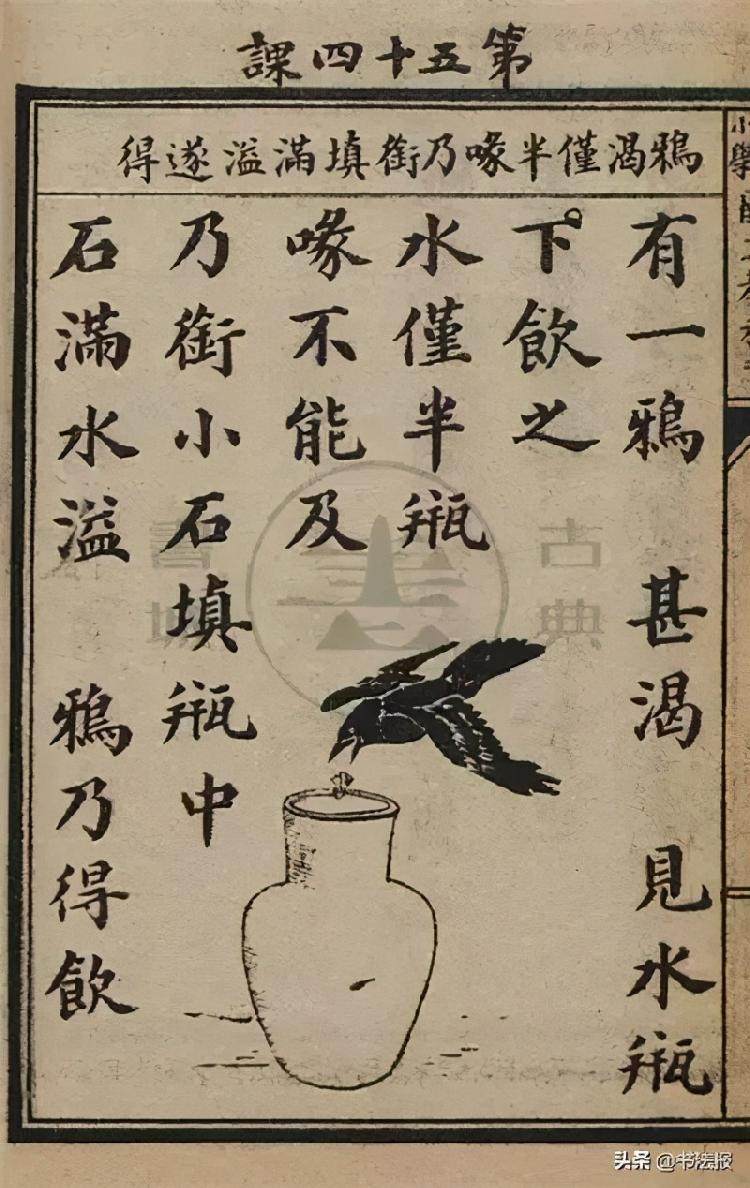 第五十四課
鴉渴僅半喙乃銜填滿溢遂得
有一鴉 甚渴 見水瓶
下飲之
水僅半瓶
喙不能及
乃銜小石填瓶中
石滿水溢 鴉乃得飲
小學
古典
書城
头条 @书法报